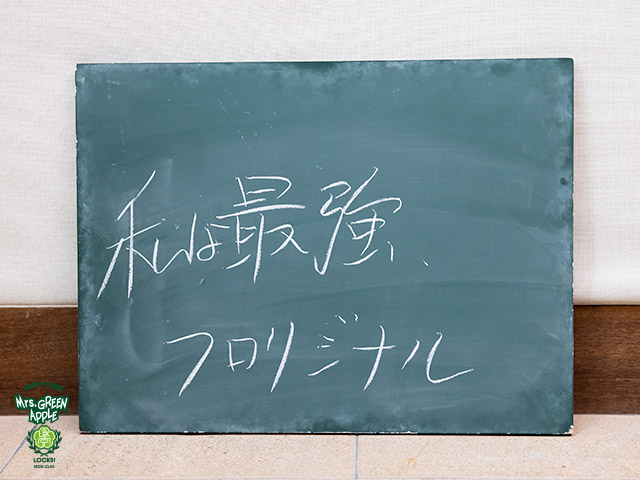 私は最強、
フロリジナル
Mrs. GREEN
APPLE
LOCKS!